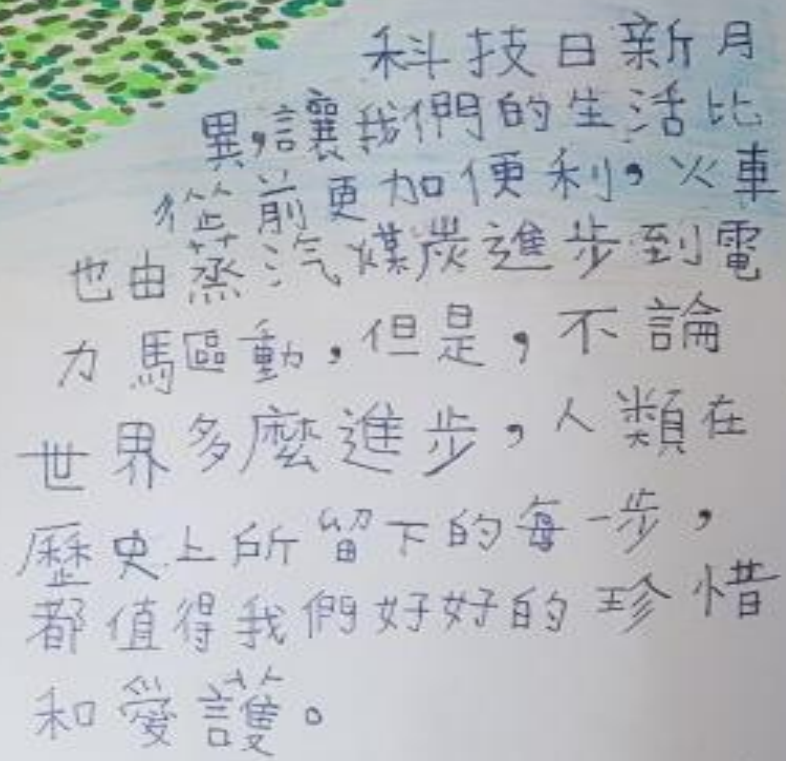 科技日新月
異,讓我們的生活比
從前更加便利,火車
也由蒸汽煤炭進步到電
力驅動,但是,不論
世界多麼進步,人類在
歷史上所留下的每一步,
都值得我們好好的珍惜
和愛護。